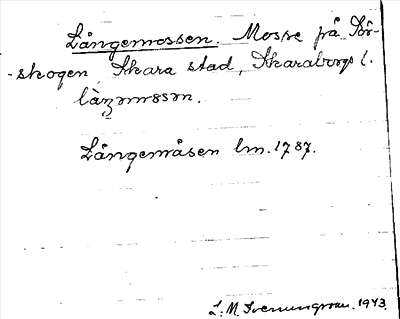 Långemossen. Mosse på Tör-
-skogen, Skara stad, Skaraborgs l.
Långemåsen lm. 1787.
L. M. Svennungsson. 1943.